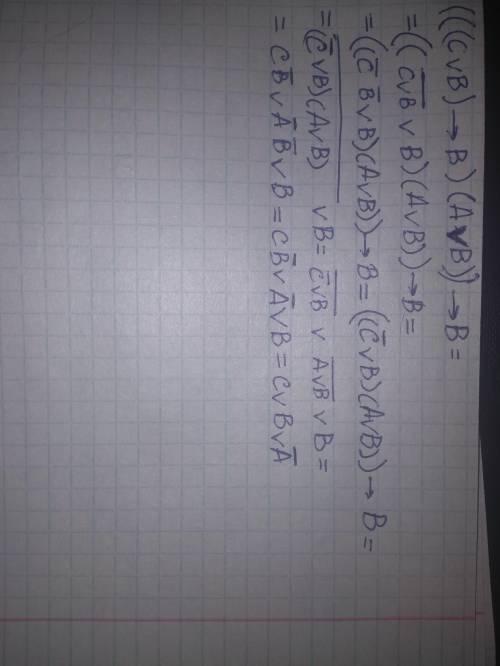 (((C∨B)→B)(A∨B))→B=
=((C̅∨̅B̅∨B)(A∨B))→B=
=((C̅ B̅∨B)(A∨B))→B=((C̅∨B)(A∨B))→B=
=(̅C̅̅∨̅B̅)̅(̅A̅∨̅B̅)̅∨B=C̅̅∨̅B̅∨A̅∨̅B̅∨B=
=CB̅∨A̅B̅∨B=CB̅∨A̅∨B=C∨B∨A̅